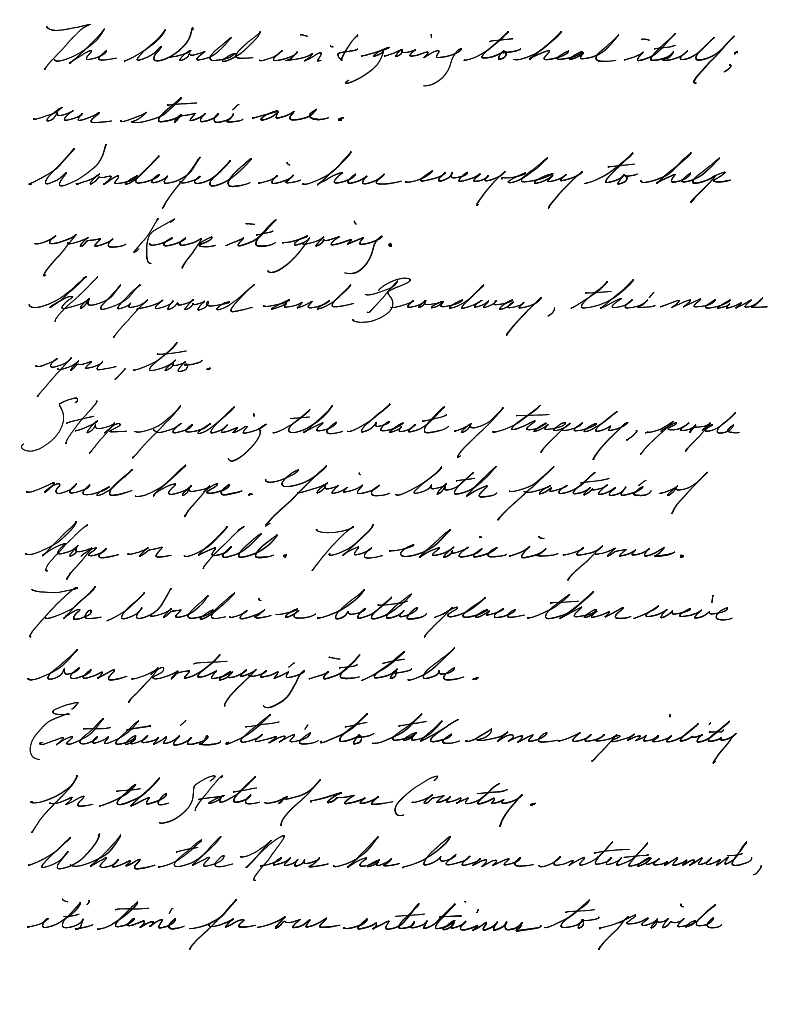 The World isn't going to heal itself;
our stories are.
Wonderfell is here everyday to help
you Keep it going.
Hollywood and Broadway, this means
you, too.
Stop feeding the beast of tragedy, people
need hope. You're both factories of
Hope or Hell. The choice is yours.
The World is a better place than we've
been portraying it to be.
Entertainers time to take some responsibility
for the State of our Country.
When the News has become entertainment,
it's time for our entertainers to provide